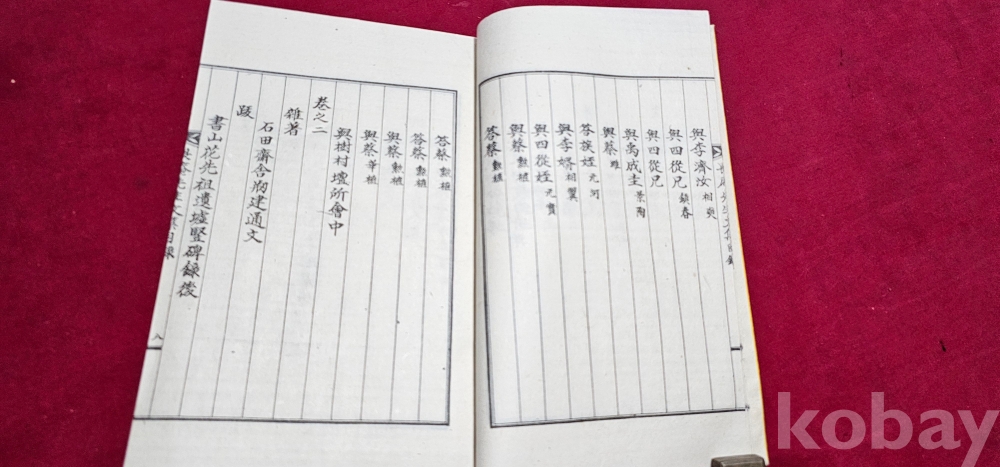 與李濟汝 相奭
與四從兄 鎮春
與四從兄
與禹成圭 景陶
與蔡 雄
答族姪 元河
與李婿 相翼
與四從姪 元寶
與蔡 勳植
答蔡 勳植
答蔡 勳植
答蔡 勳植
與蔡 勳植
與蔡 華植
與樹村壇所會中
卷之二
雜著
石田齋舍刱建通文
跋
書山花先祖遺墟豎碑錄後
八
kobay